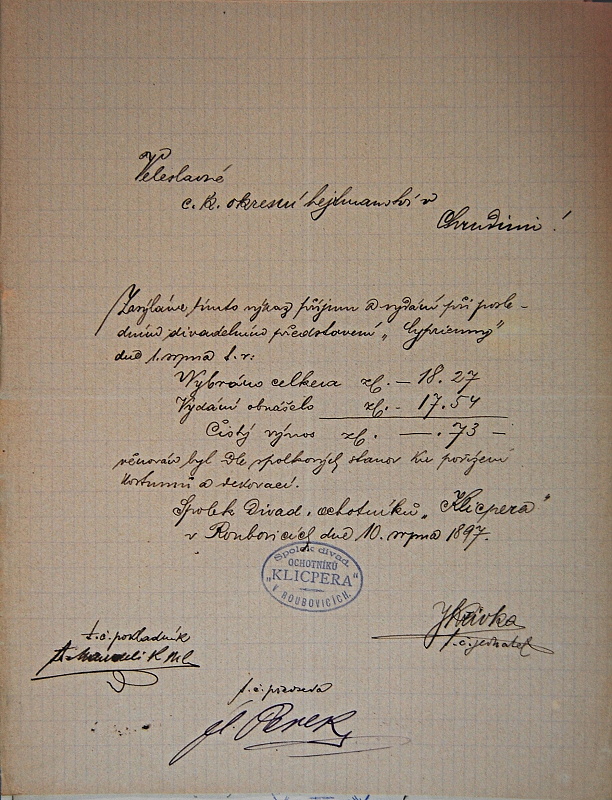 Veleslavné
c. k. okresní hejtmanství v
Chrudimi!
Zasýláme tímto výkaz příjmu a vydání při posle-
dním divadelním představení „Cyprienny"
dne 1. srpna t. r:
Vybráno celkem zl. — 18.27
Vydání obnášelo zl. - 17.54
Čistý výnos zl. — .73 —
věnován byl dle spolkových stanov ku pořízení
kostumů a dekorací.
Spolek Divad. ochotníků „Klicpera"
v Roubovicích dne 10. srpna 1897.
Spolek divad.
OCHOTNÍKŮ
„KLICPERA"
V ROUBOVICÍCH.
t. č. pokladník
t. č. jednatel
t. č. předseda